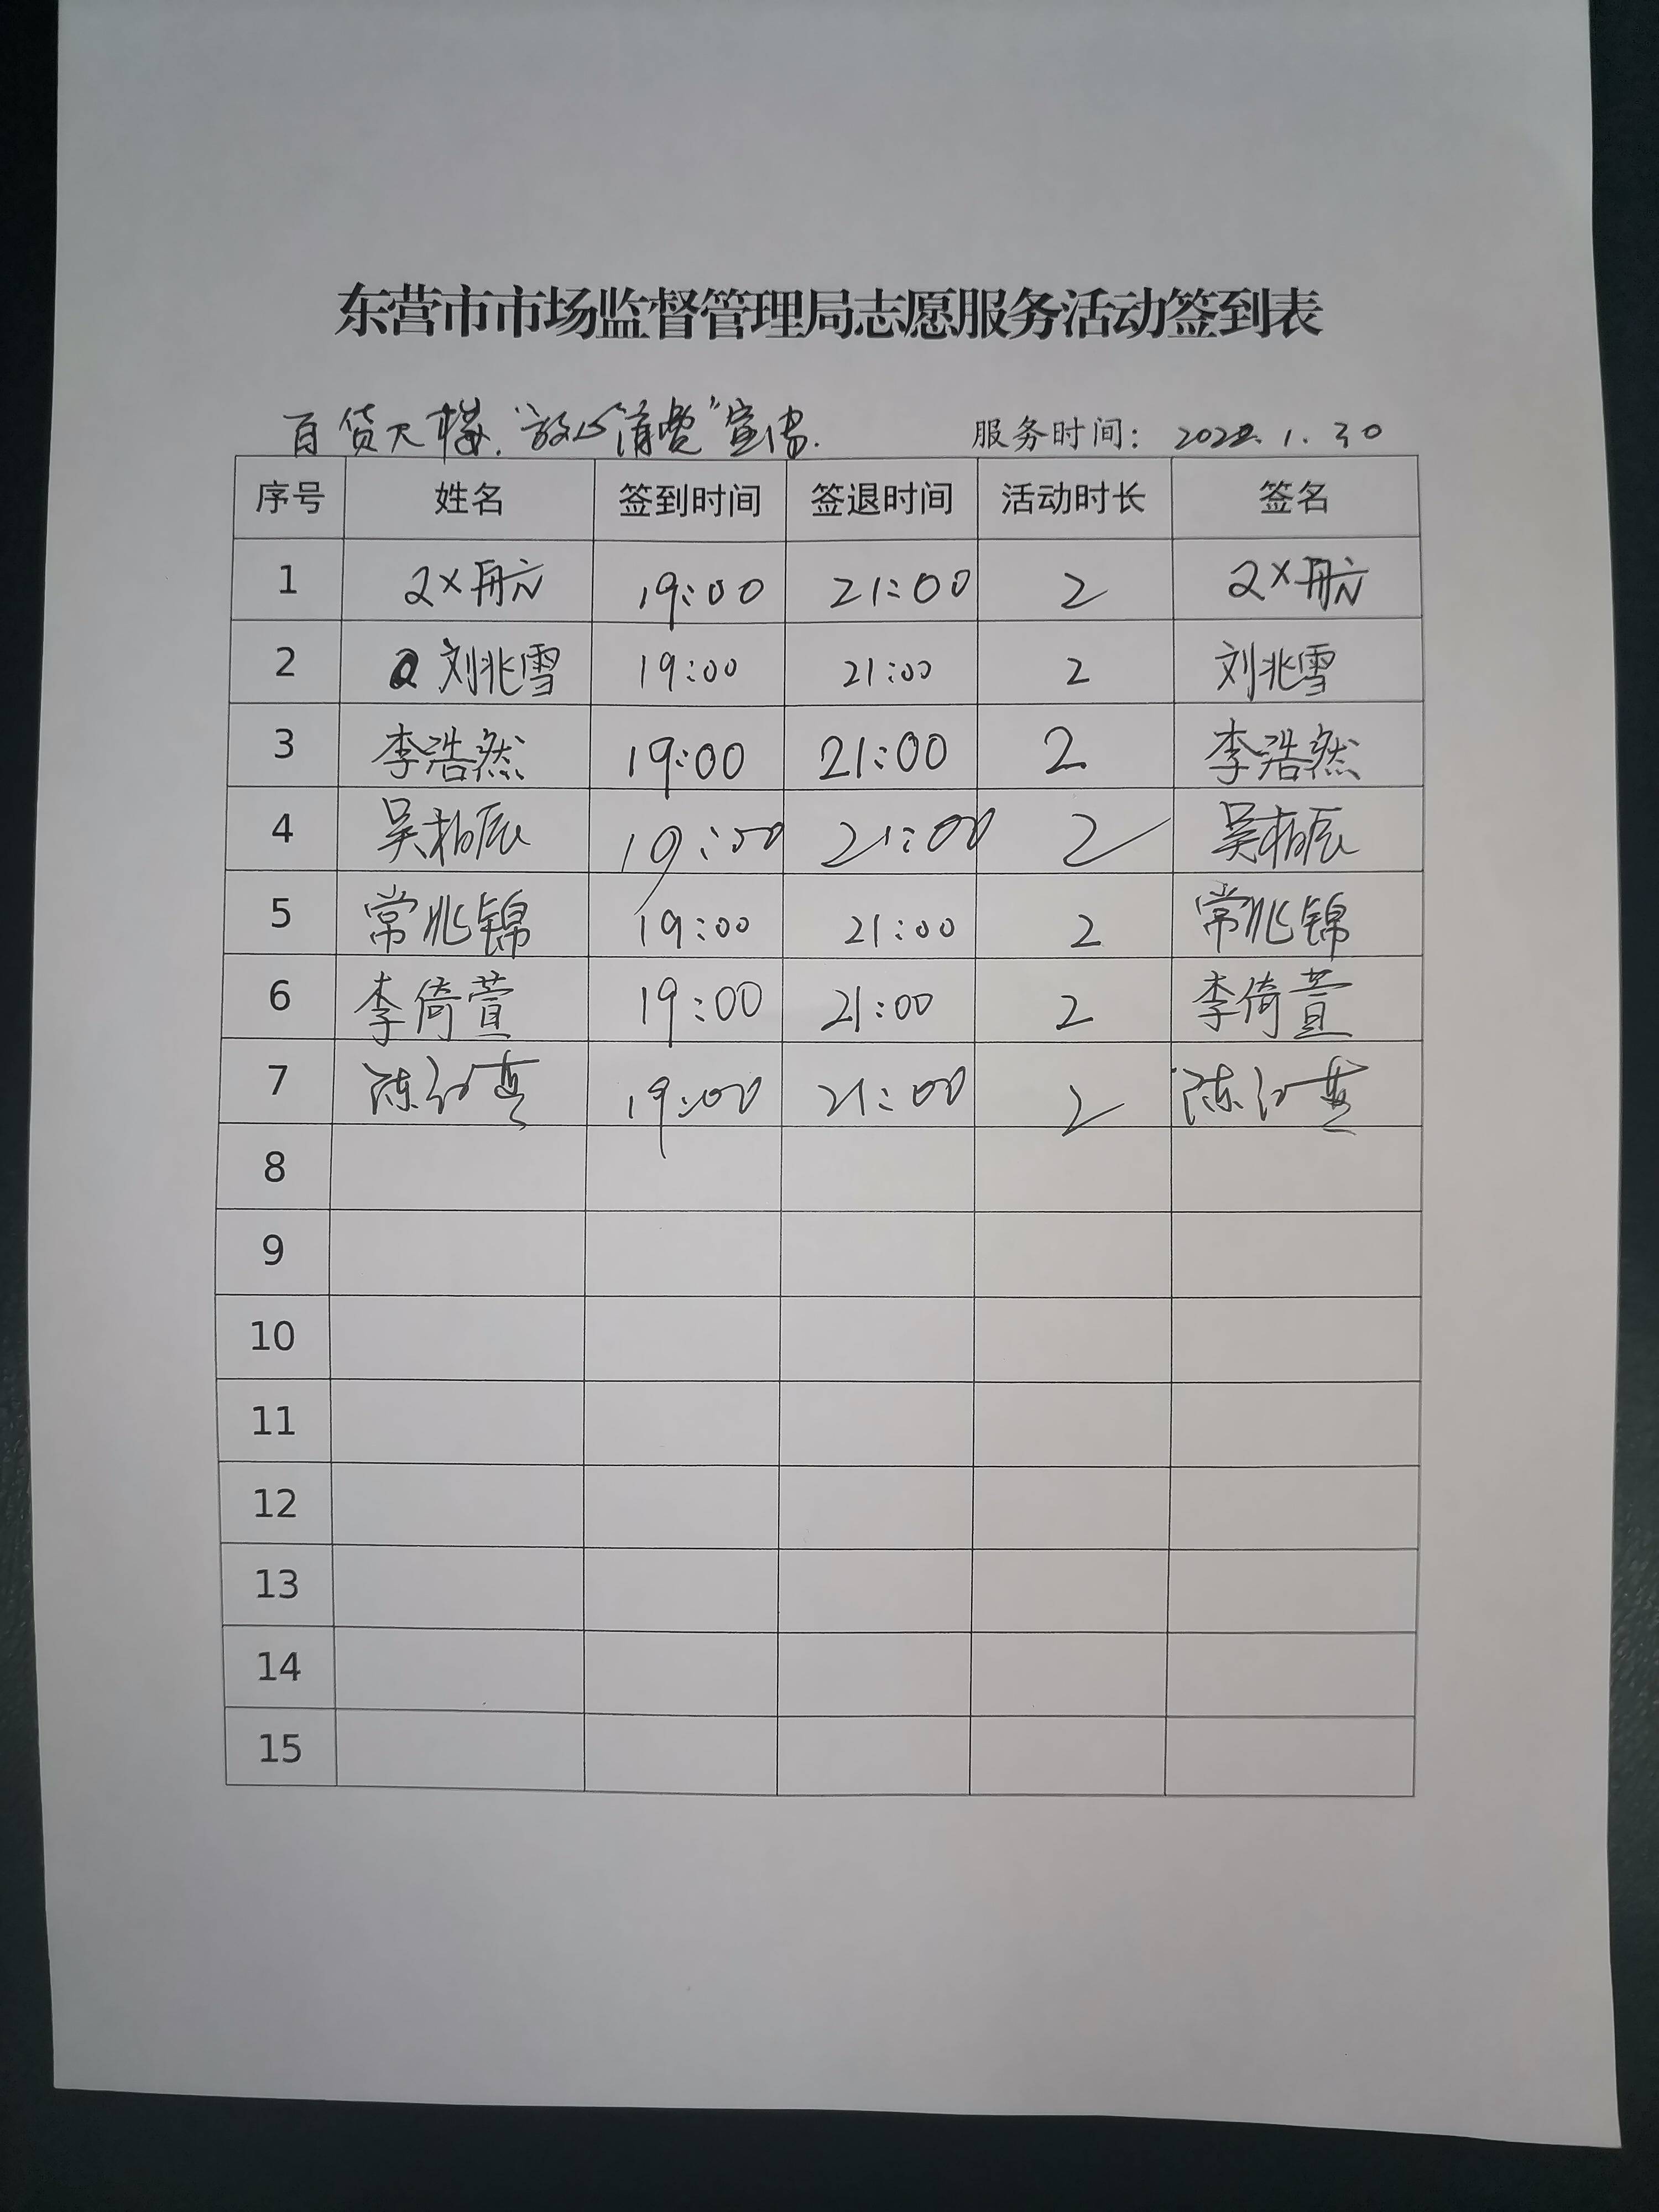 东营市市场监督管理局志愿服务活动签到表
百货大楼."放心消费"宣传. 服务时间: 2022.1.30
序号 姓名 签到时间 签退时间 活动时长 签名
1 19:00 21:00 2
2 刘兆雪 19:00 21:00 2 刘兆雪
3 李浩然 19:00 21:00 2 李浩然
4 吴柏辰 19:00 21:00 2 吴柏辰
5 常兆锦 19:00 21:00 2 常兆锦
6 李倚萱 19:00 21:00 2 李倚萱
7 陈 19:00 21:00 2 陈
8
9
10
11
12
13
14
15